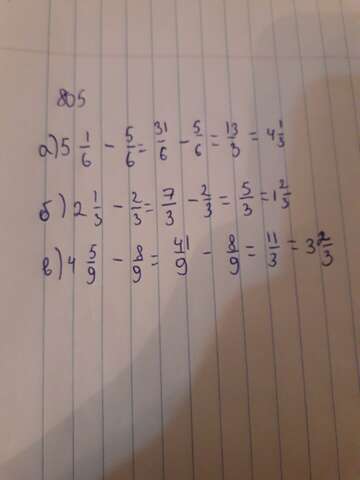 805
а) 5 1/6 - 5/6 = 31/6 - 5/6 = 13/3 = 4 1/3
б) 2 1/3 - 2/3 = 7/3 - 2/3 = 5/3 = 1 2/3
в) 4 5/9 - 8/9 = 41/9 - 8/9 = 11/3 = 3 2/3